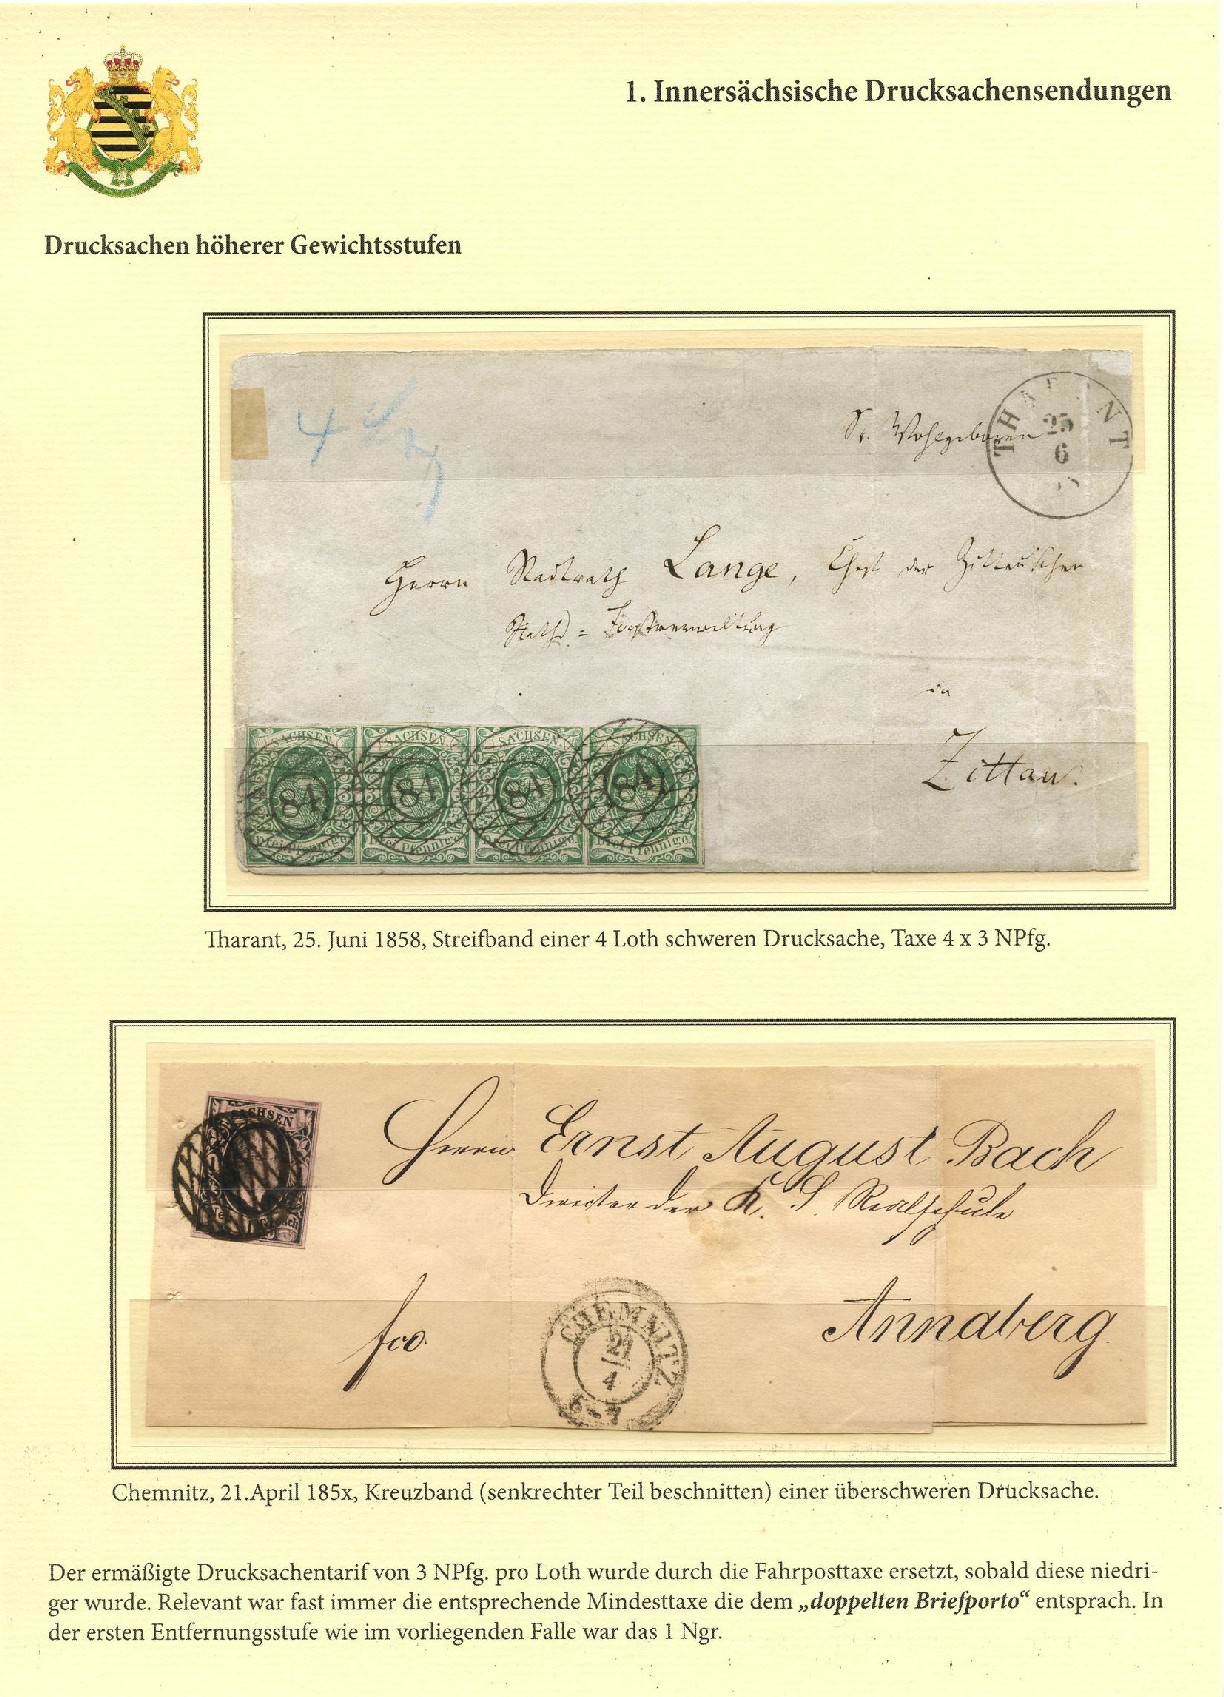 1. Innersächsische Drucksachensendungen
Drucksachen höherer Gewichtsstufen
Sr. Wohlgeboren
THARANT
25
6
Herrn Stadtrath Lange, Chef der Zittauischen
Raths = Forstverwaltung
in
Zittau.
SACHSEN SACHSEN SACHSEN SACHSEN
84 84 84 84
Drei Pfennige Drei Pfennige Drei Pfennige Drei Pfennige
Tharant, 25. Juni 1858, Streifband einer 4 Loth schweren Drucksache, Taxe 4 x 3 NPfg.
SACHSEN
Herrn Ernst August Bach
Director der K. S. Realschule
fco
Annaberg
CHEMNITZ
21
4
6-7
Chemnitz, 21.April 185x, Kreuzband (senkrechter Teil beschnitten) einer überschweren Drucksache.
Der ermäßigte Drucksachentarif von 3 NPfg. pro Loth wurde durch die Fahrposttaxe ersetzt, sobald diese niedri-
ger wurde. Relevant war fast immer die entsprechende Mindesttaxe die dem „doppelten Briefporto“ entsprach. In
der ersten Entfernungsstufe wie im vorliegenden Falle war das 1 Ngr.